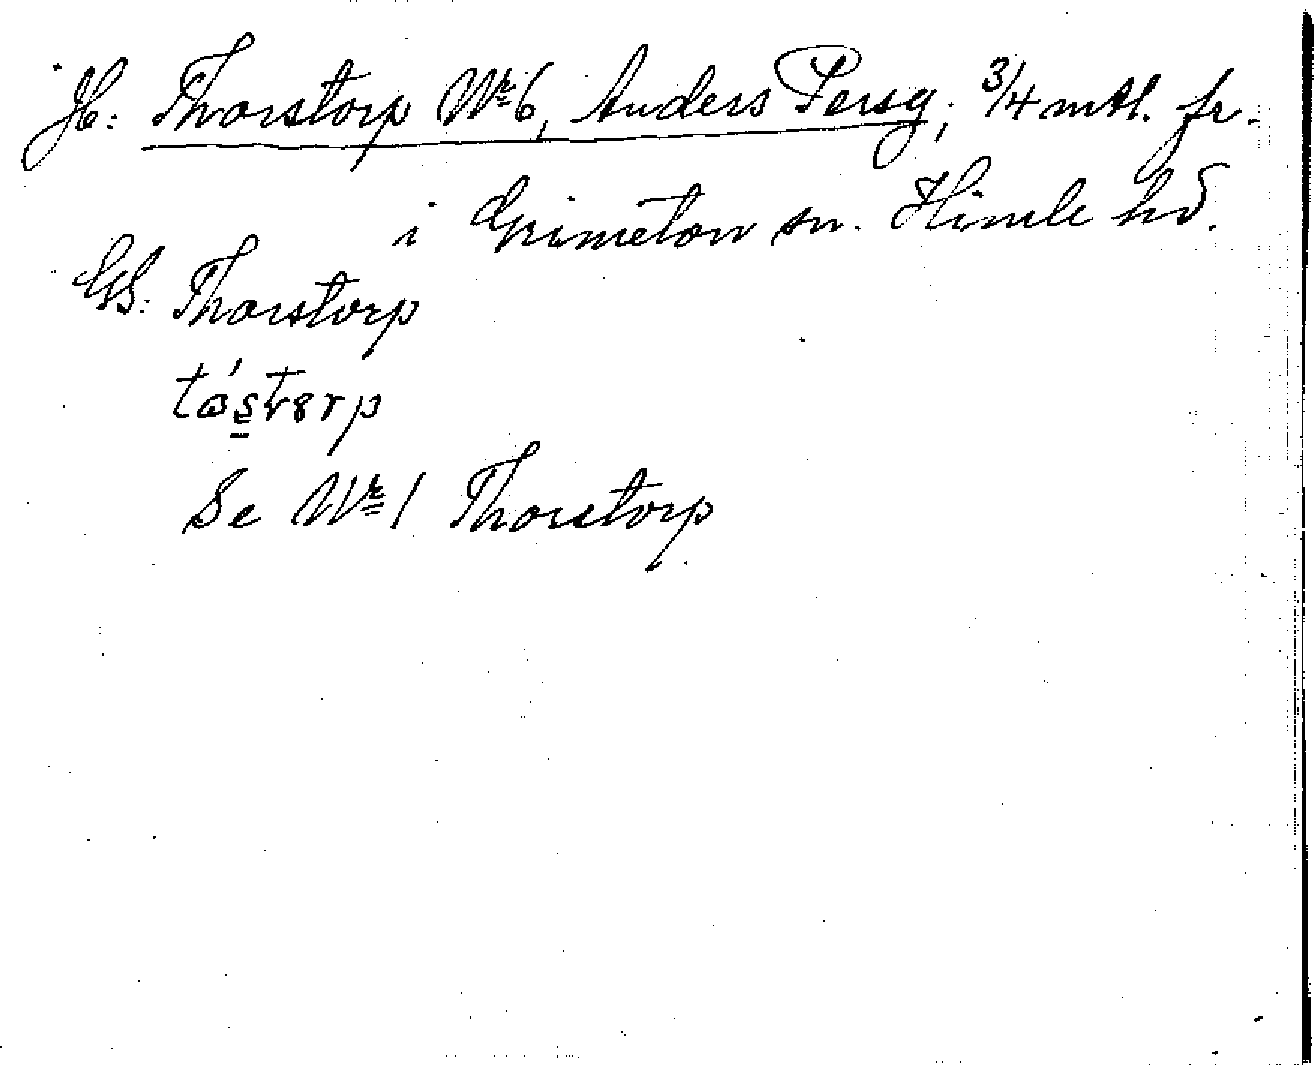 Jb: Thorstorp Nr 6, Anders Persg; 3/4 mtl. fr.
i Grimeton sn. Himle hd.
GS: Thorstorp
Se Nr 1 Thorstorp